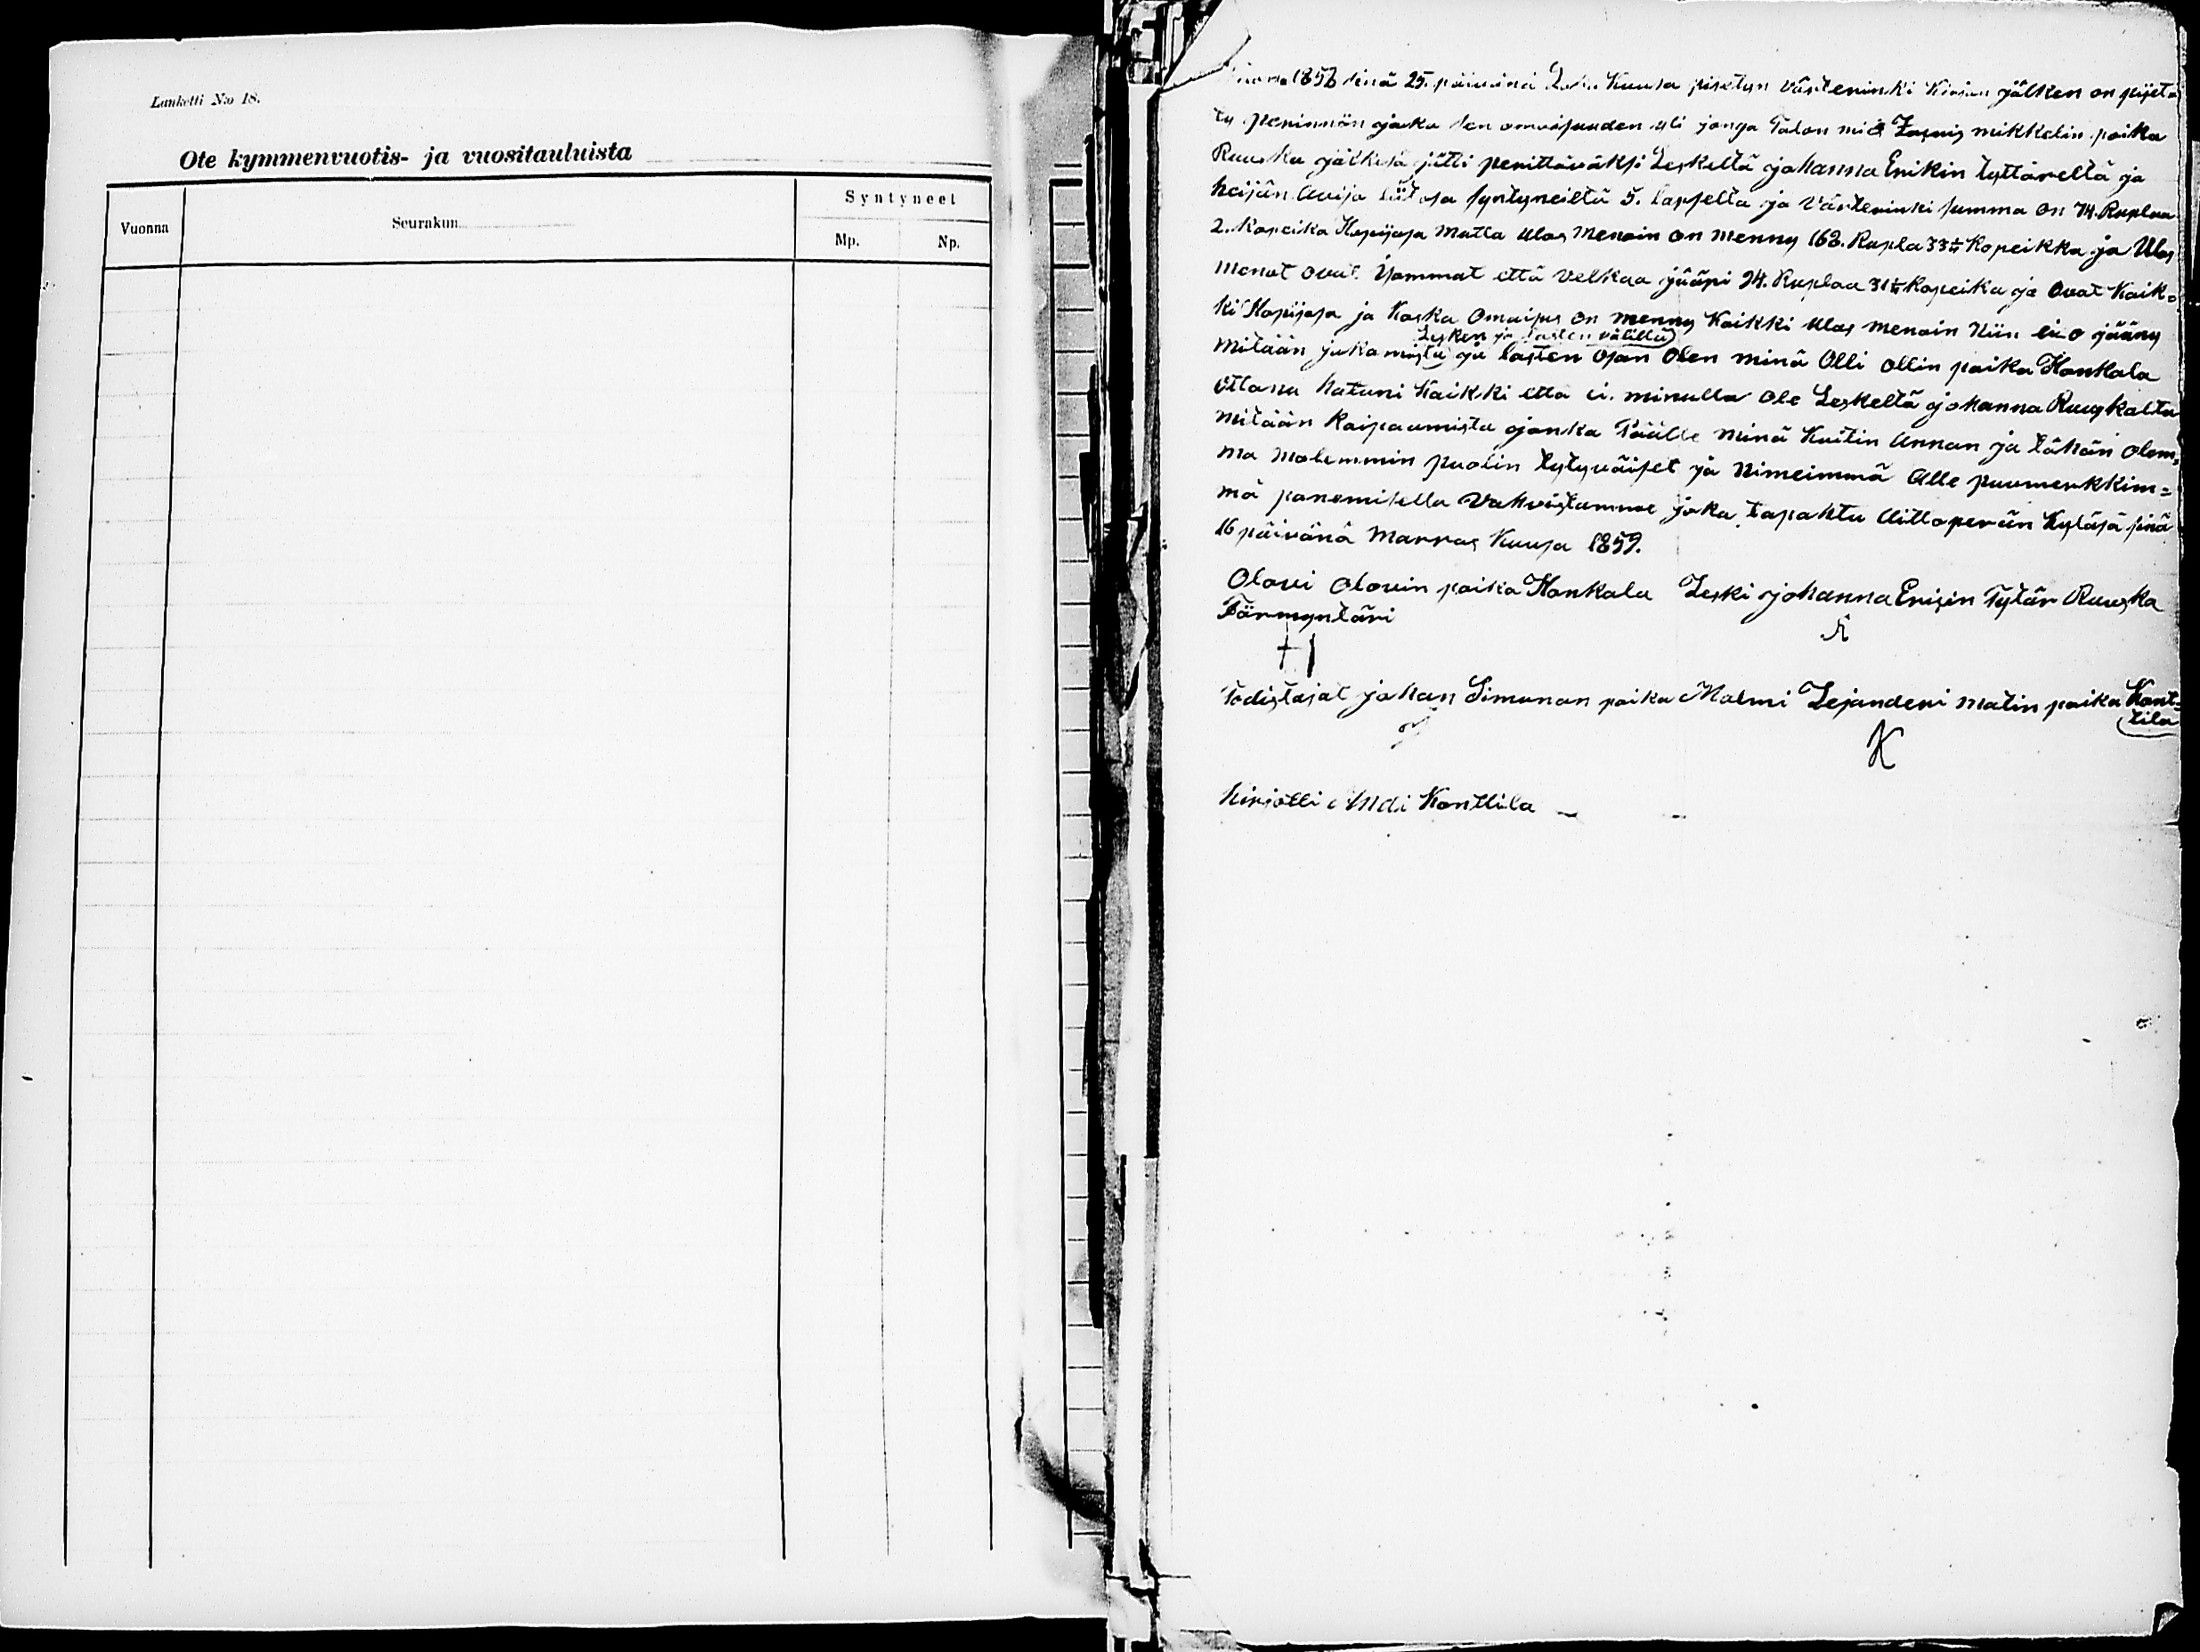 Lanketti N:o 18.
Ote kymmenvuotis- ja vuositauluista
Vuonna
Seurakun
Syntyneet
Mp.
Np.
1856 sinä 25. päivänä Kuusa pisetyn Värteerinki Kirian jälken on pijetä
ty perinnön jako sen omaisuuden yli jonga Talon mikkelin poika
Ruuska jälkesä jätti perittäväksi Leskeltä johanna Erikin tyttäreltä ja
heijän Avijo siitosa syntyneiltä 5. lapselta ja Värteerinki summa on 74. Ruplaa
2. Kopeika Hopijasa Mutta Ulos Menoin on menny 168. Rupla 33 Kopeikka ja Ulos
Menot ovat isommat että Velkaa jääpi 94. Ruplaa 31 Kopeika ja Ovat Kaik-
ki Hopijasa ja Koska Omaisus on menny Kaikki Ulos menoin Niin ei o jääny
Lesken ja lasten välillä
mitään jakamista ja lasten Osan Olen minä Olli Ollin poika Honkala
ottanu haltuni Kaikki että ei minulla Ole Leskeltä johanna Ruuskalta
mitään Kaipaamista jonka Päälle minä Kuitin Annan ja tähän olem-
ma molemmin puolin tytyväiset ja Nimeimmä Alle puumerkkim=
mä panemisella Vahvistamme joka tapahtu Aittoperän Kyläsä sinä
16 päivänä Marras Kuusa 1859.
Olovi Olovin poika Honkala Leski johanna Erikin Tytär Ruuska
Förmyntäri
Todistajat johan Simunan poika Malmi Lejanderi matin poika Kont=
tila
K
Kirjotti Andi Konttila